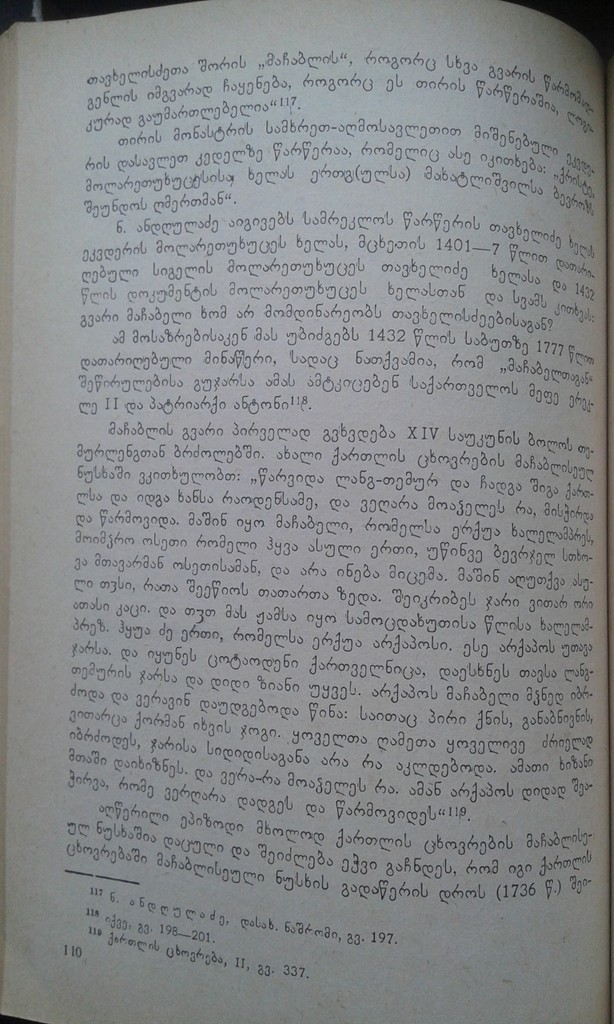 თავხელისძეთა შორის „მაჩაბლის“, როგორც სხვა გვარის წარმომად-
გენლის იმგვარად ჩაყენება, როგორც ეს თირის წარწერაშია, ლოგი-
კურად გაუმართლებელია“117.
თირის მონასტრის სამხრეთ-აღმოსავლეთით მიშენებული ეკვდე-
რის დასავლეთ კედელზე წარწერაა, რომელიც ასე იკითხება: „ქრისტე,
მოლარეთუხუცესისა, ხელას ერთგ(ულსა) მახატლიშვილსა ბევროზს
შეუნდოს ღმერთმან“.
ნ. ანდღულაძე აიგივებს სამრეკლოს წარწერის თავხელიძე ხელას
ეკვდერის მოლარეთუხუცეს ხელას, მცხეთის 1401—7 წლით დათარი-
ღებული სიგელის მოლარეთუხუცეს თავხელიძე ხელასა და 1432
წლის დოკუმენტის მოლარეთუხუცეს ხელასთან და სვამს კითხვას:
გვარი მაჩაბელი ხომ არ მომდინარეობს თავხელისძეებისაგან?
ამ მოსაზრებისაკენ მას უბიძგებს 1432 წლის საბუთზე 1777 წლით
დათარიღებული მინაწერი, სადაც ნათქვამია, რომ „მაჩაბელთაგან“
შეწირულებისა გუჯარსა ამას ამტკიცებენ საქართველოს მეფე ერეკ-
ლე II და პატრიარქი ანტონი118.
მაჩაბლის გვარი პირველად გვხვდება XIV საუკუნის ბოლოს თე-
მურლენგთან ბრძოლებში. ახალი ქართლის ცხოვრების მაჩაბლისეულ
ნუსხაში ვკითხულობთ: „წარვიდა ლანგ-თემურ და ჩადგა შიგა ქართ-
ლსა და იდგა ხანსა რაოდენსამე, და ვეღარა მოაჯელეს რა, მისჭირდა
და წარმოვიდა. მაშინ იყო მაჩაბელი, რომელსა ერქუა ხალელამპრეს,
მოიმჯრო ოსეთი რომელი ჰყვა ასული ერთი, უწინვე ბევრჯელ სთხო-
ვა მთავარმან ოსეთისამან, და არა ინება მიცემა. მაშინ აღუთქვა ასუ-
ლი თჳსი, რათა შეეწიოს თათართა ზედა. შეიკრიბეს ჯარი ვითარ ორი
ათასი კაცი. და თჳთ მას ჟამსა იყო სამოცდახუთისა წლისა ხალელამ-
პრეზ. ჰყუა ძე ერთი, რომელსა ერქუა არქაპოსი. ესე არქაპოს უთავა
ჯარსა. და იყუნეს ცოტაოდენი ქართველნიცა, დაესხნეს თავსა ლანგ-
თემურის ჯარსა და დიდი ზიანი უყვეს. არქაპოს მაჩაბელი მჴნედ იბრ-
ძოდა და ვერავინ დაუდგებოდა წინა: საითაც პირი ქნის, განაბნივნის,
ვითარცა ქორმან იხვის ჯოგი. ყოველთა ღამეთა ყოველივე ძრიელად
იბრძოდეს, ჯარისა სიდიდისაგანა არა რა აკლდებოდა. ამათი ხიზანი
მთაში დაიხიზნეს. და ვერა-რა მოაჯელეს რა. ამან არქაპოს დიდად შეა-
ჭირვა, რომე ვერღარა დადგეს და წარმოვიდეს“119.
აღწერილი ეპიზოდი მხოლოდ ქართლის ცხოვრების მაჩაბლისე-
ულ ნუსხაშია დაცული და შეიძლება ეჭვი გაჩნდეს, რომ იგი ქართლის
ცხოვრებაში მაჩაბლისეული ნუსხის გადაწერის დროს (1736 წ.) შეი-
117 ნ. ანდღულაძე, დასახ. ნაშრომი, გვ. 197.
118 იქვე, გვ. 198—201.
119 ქართლის ცხოვრება, II, გვ. 337.
110